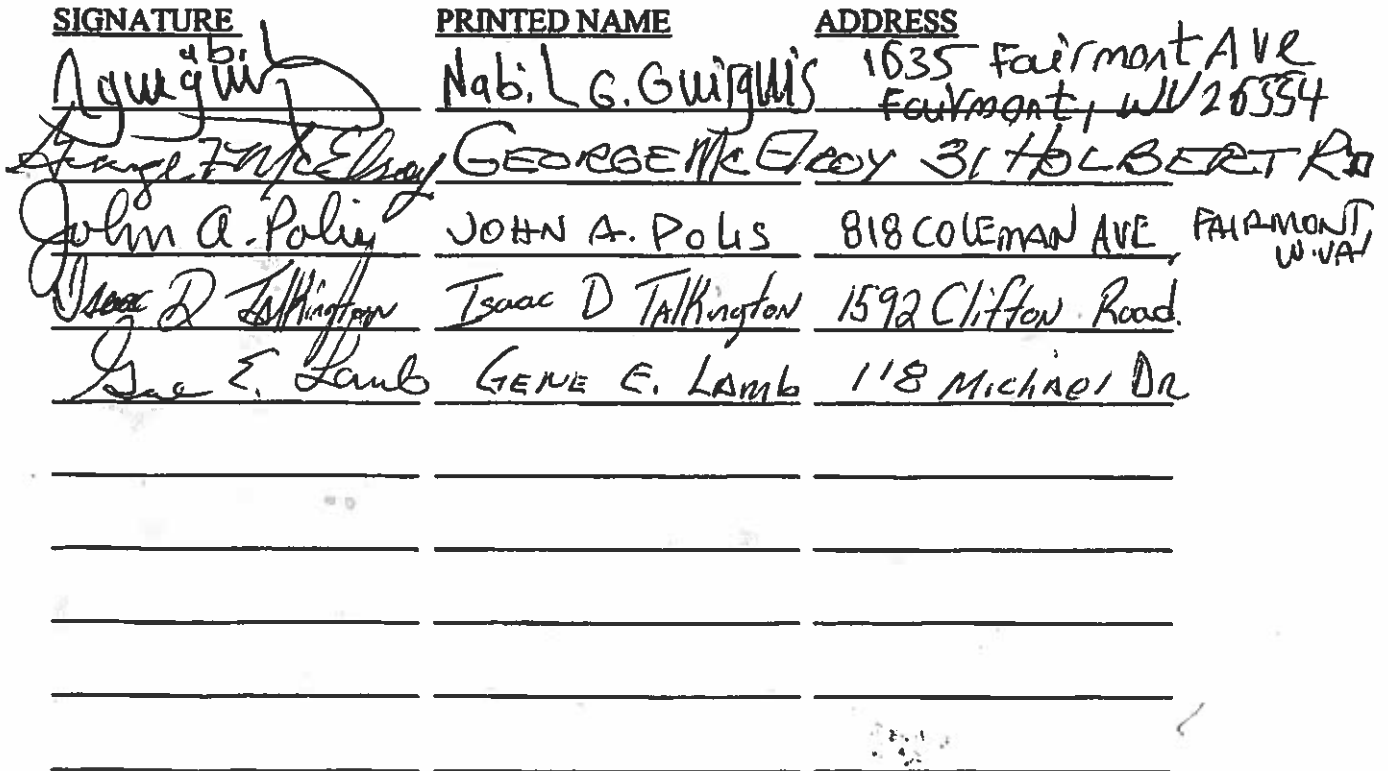 SIGNATURE PRINTED NAME ADDRESS
Nabil G. Guirguis 1635 Fairmont Ave
Fairmont, WV 26554
George F McElroy GEORGE McElroy 31 HOLBERT RD
John A. Polis JOHN A. Polis 818 COLEMAN AVE FAIRMONT,
W.VA
Isaac D Talkington Isaac D TAlKington 1592 Clifton Road.
Gene E. Lamb GENE E. LAmb 118 MichAel DR